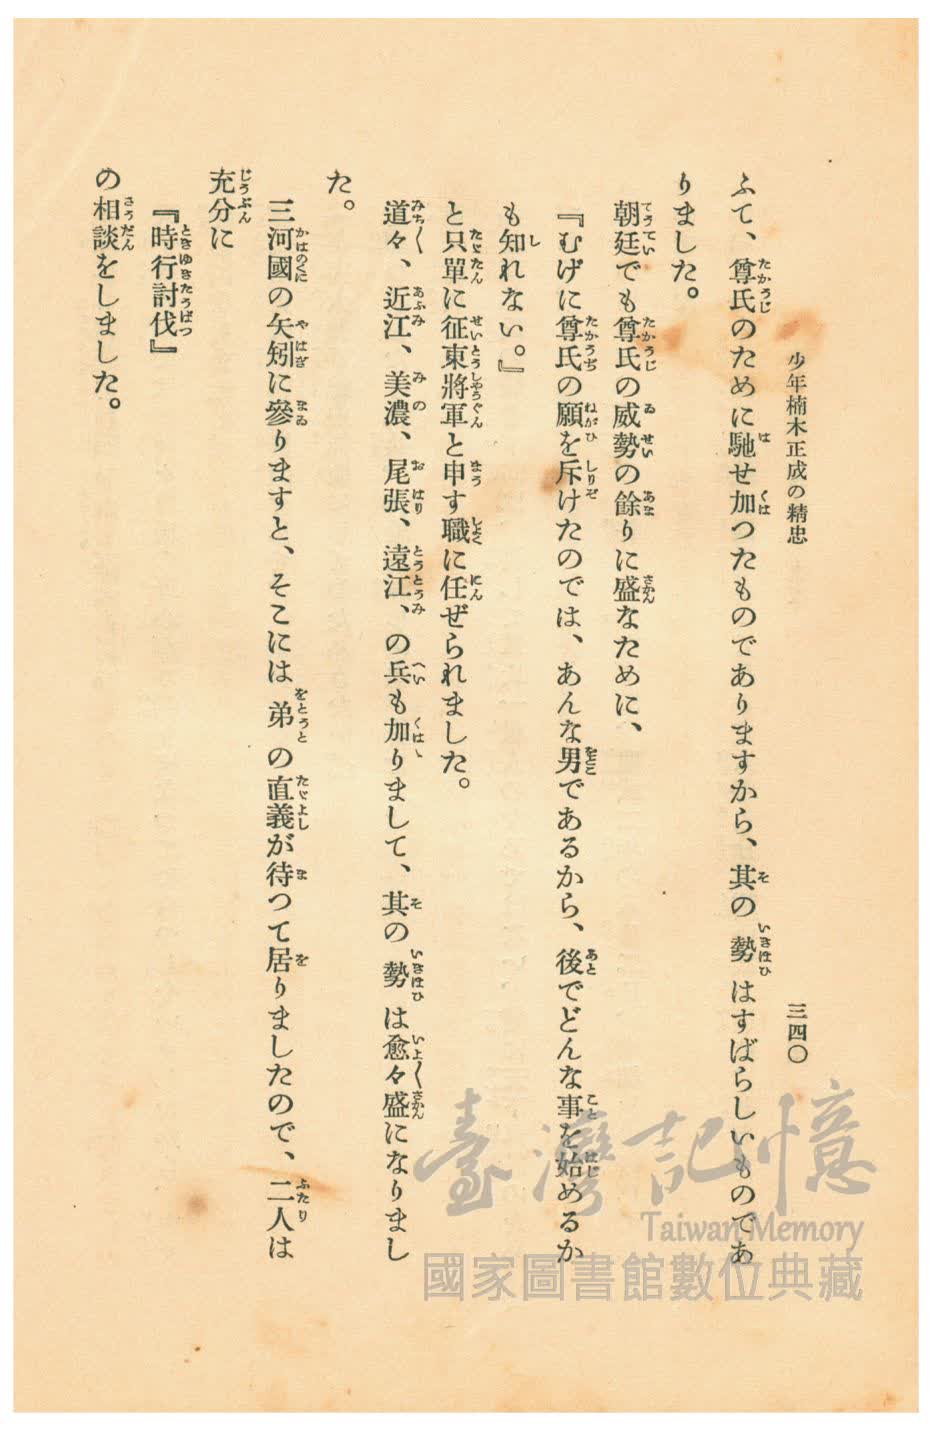 少年楠木正成の精忠
三四〇
ふて、尊氏のために馳せ加つたものでありますから、其の勢はすばらしいものであ
りました。
朝廷でも尊氏の威勢の餘りに盛なために、
『むげに尊氏の願を斥けたのでは、あんな男であるから、後でどんな事を始めるか
も知れない。』
と只單に征東將軍と申す職に任ぜられました。
道々、近江、美濃、尾張、遠江、の兵も加りまして、其の勢は愈々盛になりまし
た。
三河國の矢矧に參りますと、そこには弟の直義が待つて居りましたので、二人は
充分に
『時行討伐』
の相談をしました。
臺灣記憶
Taiwan Memory
國家圖書館數位典藏